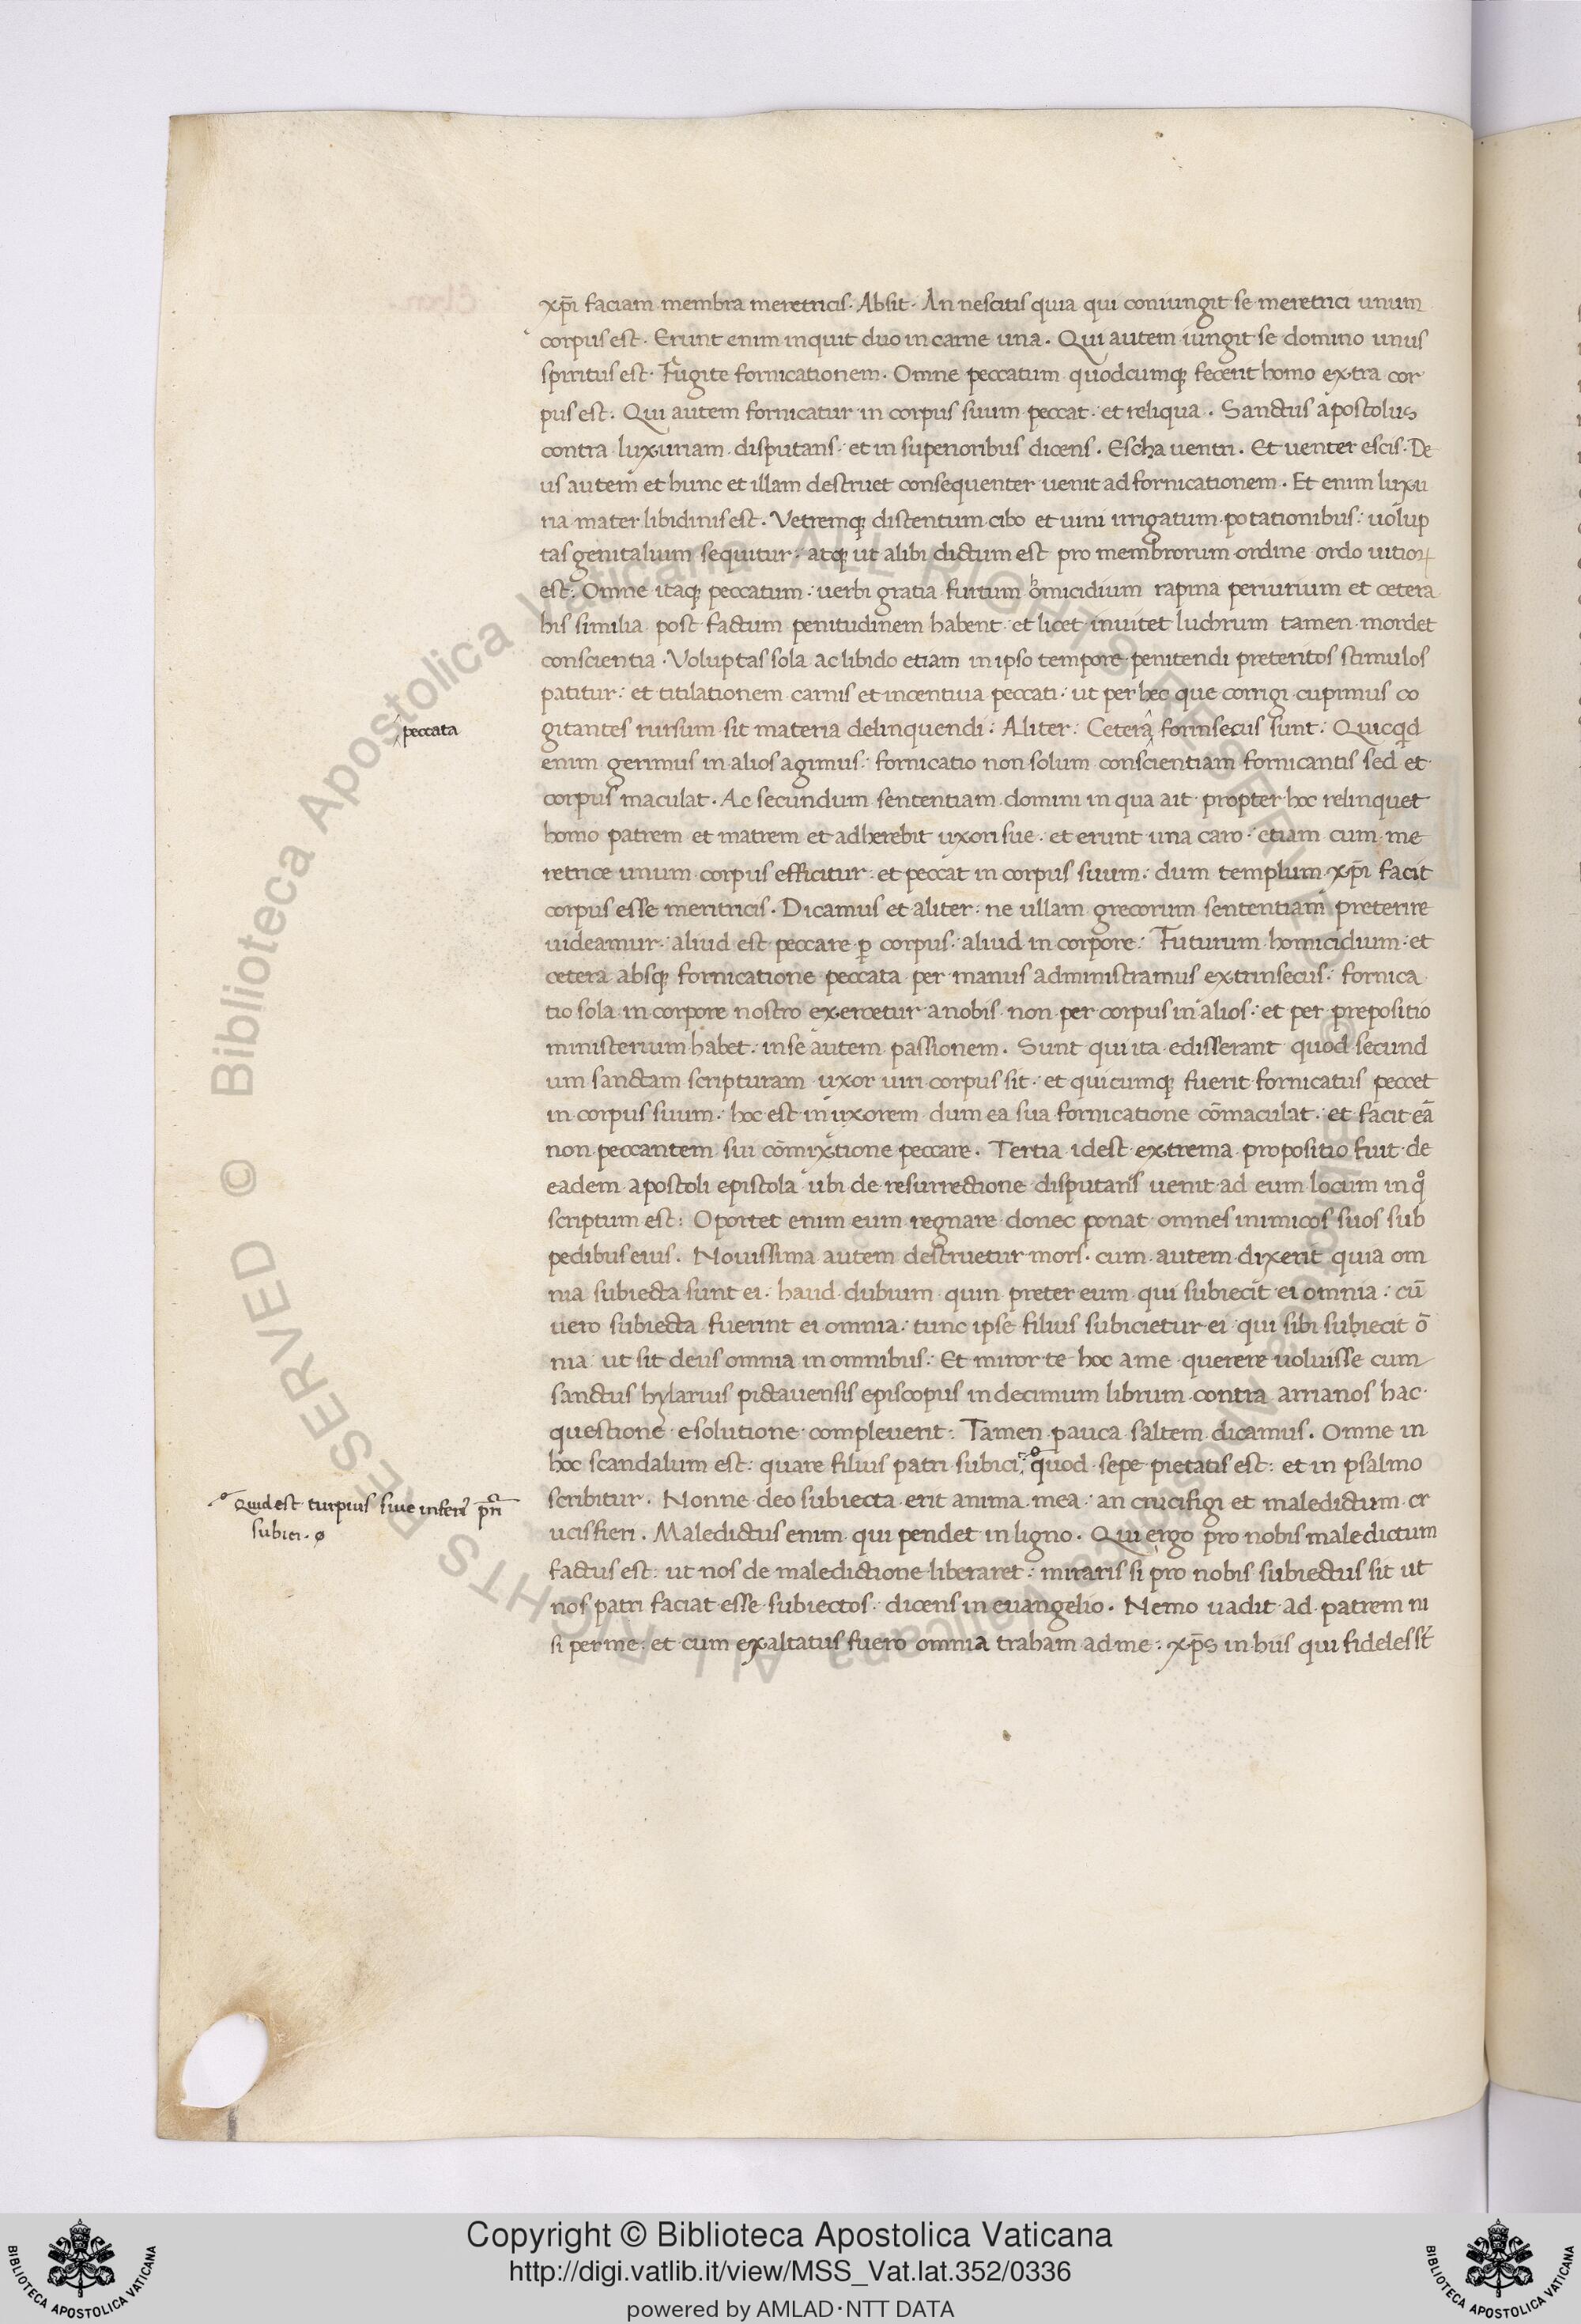 xp̄i faciam membra meretricis. Absit. An nescitis quia qui coniungit se meretrici unum
corpus est. Erunt enim inquit duo in carne una. Qui autem iungit se domino unus
spiritus est. Fugite fornicationem. Omne peccatum quodcumq; fecerit homo extra cor
pus est. Qui autem fornicatur in corpus suum peccat: et reliqua. Sanctus apostolus
contra luxuriam disputans: et in superioribus dicens. Escha uentri. Et uenter escis. De
us autem et hunc et illam destruet consequenter uenit ad fornicationem. Et enim luxu
ria mater libidinis est. Vetremq; distentum cibo et uini irrigatum potationibus: uolup
tas genitalium sequitur: atq; ut alibi dictum est pro membrorum ordine ordo uitioꝝ
est: Omne itaq; peccatum: uerbi gratia furtum homicidium rapina periurium et cetera
his similia post factum penitudinem habent et licet inuitet luchrum tamen mordet
conscientia. Voluptas sola ac libido etiam in ipso tempore penitendi preteritos stimulos
patitur: et titilationem carnis et incentiua peccati: ut per hec que corrigi cupimus co
gitantes rursum sit materia delinquendi: Aliter: Cetera forinsecus sunt: Quicqd
peccata
enim gerimus in alios agimus: fornicatio non solum conscientiam fornicantis sed et
corpus maculat. Ac secundum sententiam domini in qua ait propter hoc relinquet
homo patrem et matrem et adherebit uxori sue: et erunt una caro: etiam cum me
retrice unum corpus efficitur: et peccat in corpus suum: dum templum xp̄i facit
corpus esse meritricis. Dicamus et aliter: ne ullam grecorum sententiam preterire
uideamur: aliud est peccare ꝑ corpus: aliud in corpore: Futurum homicidium: et
cetera absq; fornicatione peccata per manus administramus extrinsecus: fornica
tio sola in corpore nostro exercetur a nobis non per corpus in alios: et per prepositio
ministerium habet: in se autem passionem. Sunt qui ita edisserant quod secund
um sanctam scripturam uxor uiri corpus sit: et quicumq; fuerit fornicatus peccet
in corpus suum: hoc est in uxorem dum ea sua fornicatione cōmaculat: et facit eā
non peccantem sui cōmixtione peccare. Tertia idest extrema propositio fuit de
eadem apostoli epistola ubi de resurrectione disputans uenit ad eum locum in qͦ
scriptum est: Oportet enim eum regnare donec ponat omnes inimicos suos sub
pedibus eius. Nouissima autem destruetur mors. cum autem dixerit quia om
nia subiecta sunt ei: haud dubium quin preter eum qui subiecit ei omnia: cū
uero subiecta fuerint ei omnia: tunc ipse filius subicietur ei qui sibi subiecit ō
nia ut sit deus omnia in omnibus: Et miror te hoc a me querere uoluisse cum
sanctus hylarius pictauensis episcopus in decimum librum contra arrianos hac
questione esolutione compleuerit: Tamen pauca saltem dicamus. Omne in
hoc scandalum est: quare filius patri subici: quod sepe pietatis est: et in psalmo
scribitur. Nonne deo subiecta erit anima mea: an crucifigi et maledictum cr
Quid est turpius siue
subici. ø
ucis fieri. Maledictus enim qui pendet in ligno. Qui ergo pro nobis maledictum
factus est: ut nos de maledictione liberaret: miraris si pro nobis subiectus sit ut
nos patri faciat esse subiectos: dicens in euangelio. Nemo uadit ad patrem ni
si per me: et cum exaltatus fuero omnia traham ad me: xp̄s in his qui fideles st̄
© Biblioteca Apostolica Vaticana ALL RIGHTS RESERVED
Copyright © Biblioteca Apostolica Vaticana
http://digi.vatlib.it/view/MSS_Vat.lat.352/0336
powered by AMLAD·NTT DATA
BIBLIOTECA APOSTOLICA VATICANA
BIBLIOTECA APOSTOLICA VATICANA